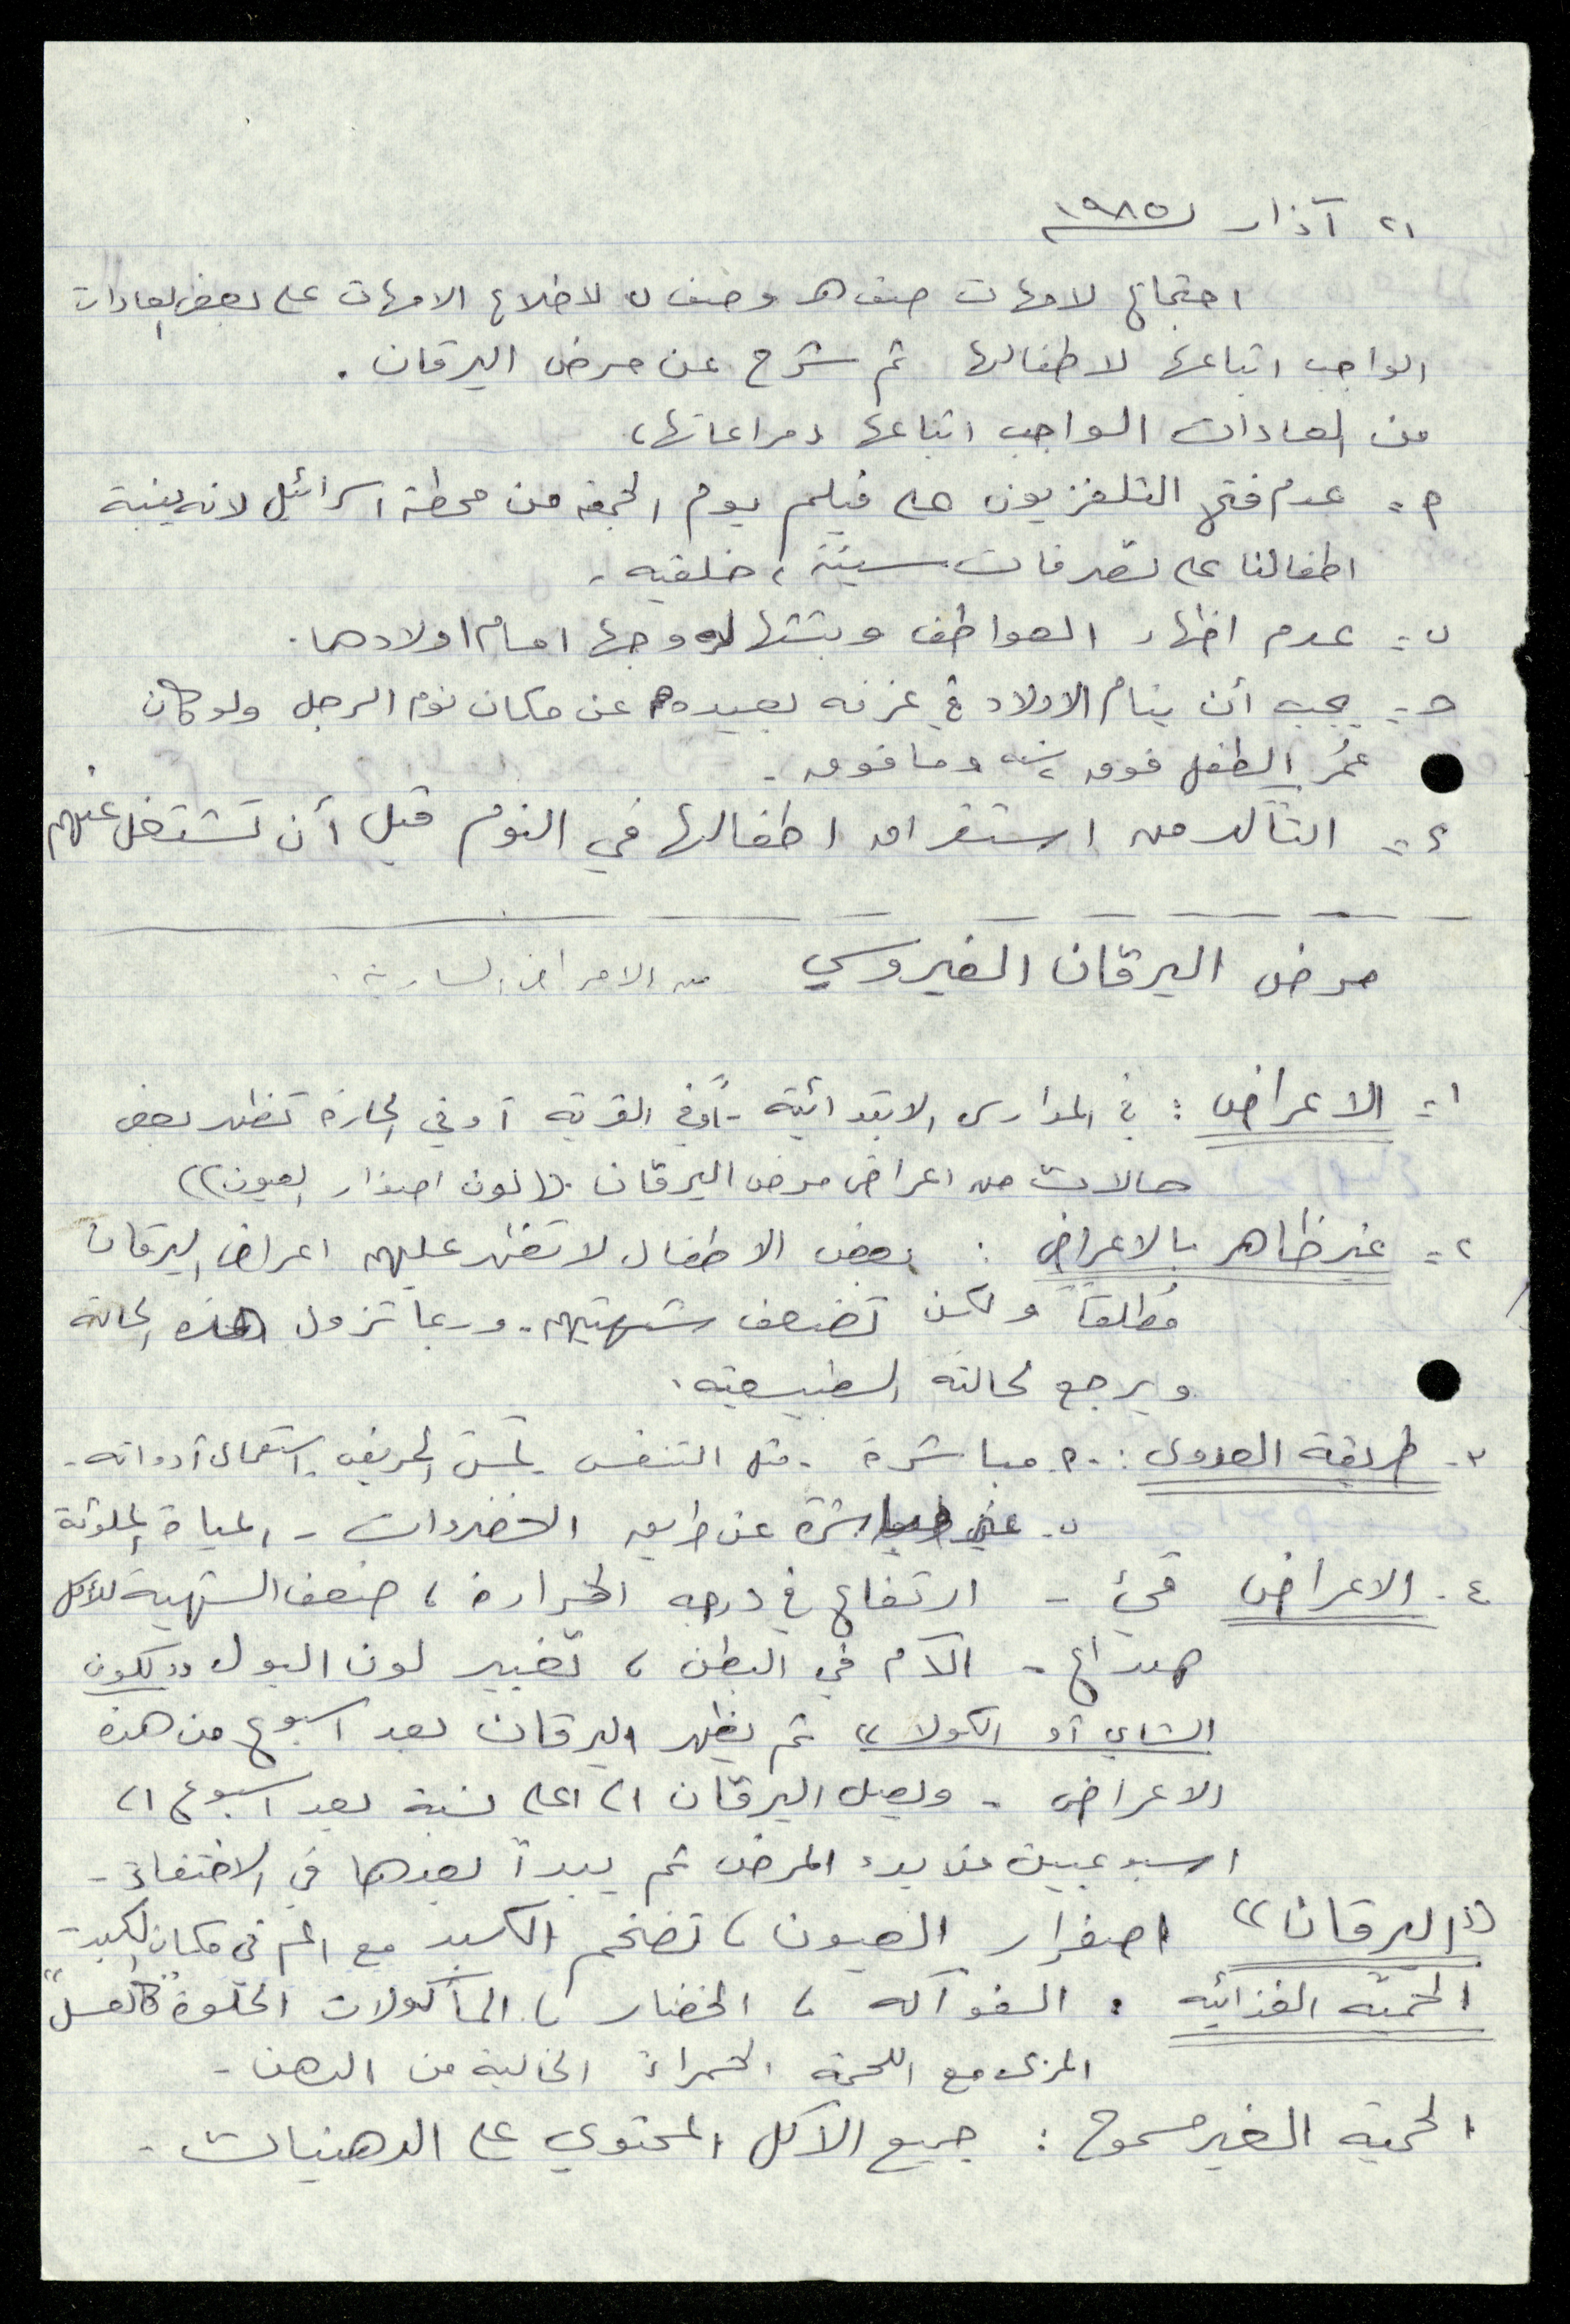 ٢١ آذار ١٩٨٥
اجتماع لامهات صف هـ وصف ن لاطلاع الامهات على بعض العادات
الواجب اتباعها لاطفالها ثم شرح عن مرض اليرقان .
من العادات الواجب اتباعها ومراعاتها،
٢= عدم فتح التلفزيون على فيلم يوم الجمعه من محطة اسرائيل لانه ينبة
اطفالنا على تصرفات سيئة ، خلقيه .
ن= عدم اظهار العواطف وبثتها لزوجها امام اولادها.
حـ= يجب أن ينام الاولاد في غرفه بعيده عن مكان نوم الرجل ولو كان
عمُر الطفل فوق ٢ سنه وما فوق .
٤= التأكد من استغراق اطفالها في النوم قبل أن تشتغل عنهم
مرض اليرقان الفيروسي من الامراض السارية .
١= الاعراض : في المدارس الابتدائية - أو في القرية أو في الحارة تظهر بعض
حالات من اعراض مرض اليرقان. ((لون اصفرار العيون))
٢= غير ظاهر بالاعراض : بعض الاطفال لا تظهر عليهم اعراض اليرقان
مُطلقاً ولكن تضعف شهيتهم. وربما تزول هذه الحالة
ويرجع لحالته الطبيعيه .
٣- طريقة العدوى : ٢. مباشرة . مثل التنفس . المريض . استعمال أدواته .
ن. غير مباشرة عن طريق الخضروات - المياة الملوثة
٤. الاعراض قيئ - ارتفاع في درجه الحرارة ، ضعف الشهية للأكل
صداع - الآم في البطن ، تغيير لون البول ((كلون
الشاي أو الكولا)) ثم يظهر اليرقان بعد اسبوع من هذه
الاعراض - ويصل اليرقان الى اعلى نسبة بعد اسبوع الى
اسبوعيين من بدء المرض ثم يبدأ بعدها في الاختفاء -
((اليرقان)) اصفرار العيون ، تضخم الكبد مع الم في مكان الكبد -
الحميّه الغذائيه : الفوآكه ، الخضار ، المأكولات الحلوة "كالعسل"
المربى مع اللحمة الحمراء الخالية من الدهن -
الحمية الغير مسموح : جميع الأكل المحتوي على الدهنيات .